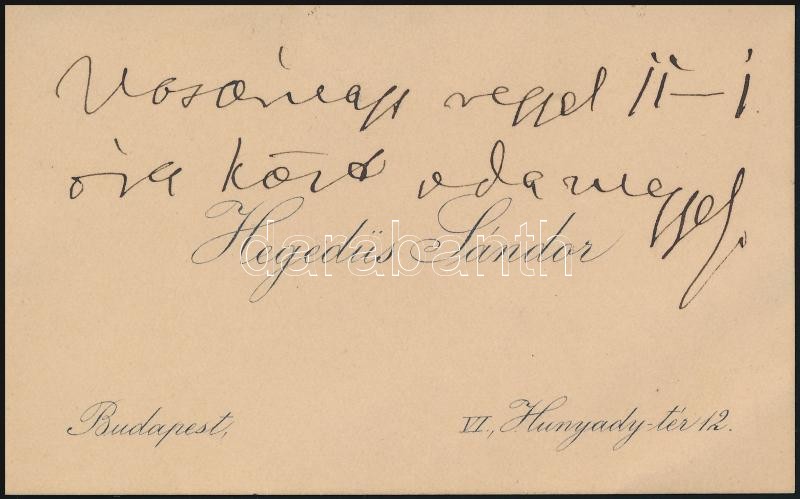 Vasárnap reggel 11–1
óra közt oda megyek
Hegedüs Sándor
darabanth
Budapest,
VI., Hunyady-tér 12.